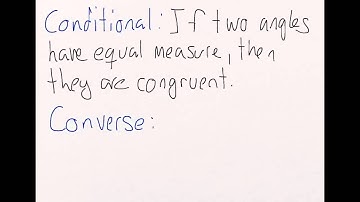 Conditional: If two angles
have equal measure, then
they are congruent.
Converse: